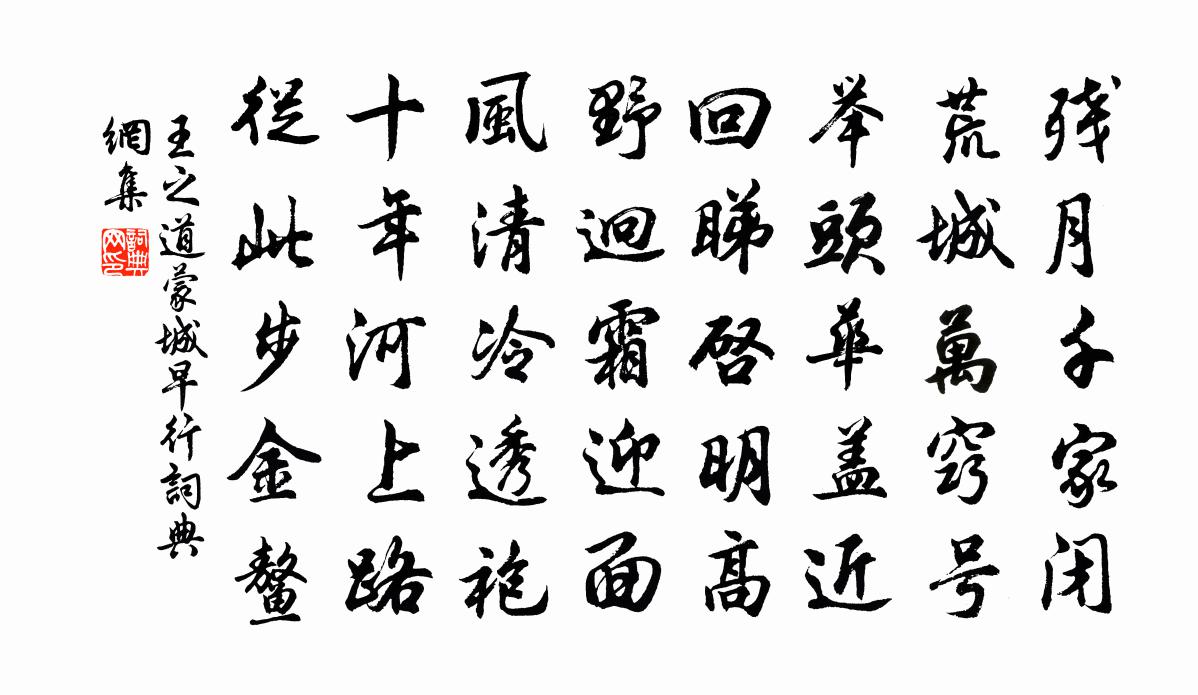 残月千家闭
荒城萬竅号
举頭華盖近
回睇啓明高
野迥霜迎面
風清冷透袍
十年河上路
從此步金鳌
王之道蒙城早行詞典
網集
詞典网印